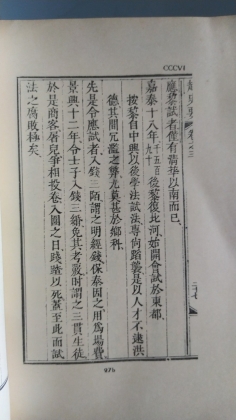 CCCVI
應黎試者僅有清華以南而已
嘉泰十八年千五百九十後黎復北河始開會試於東都
按黎自中興以後學法試法專向蹈襲是以人才不逮洪
德其間冗濫之弊尤莫甚於鄉科
先是令應試者入錢三陌謂之明經錢保泰因之用爲場費
景興十二年令士子入錢三緡免其考覈時謂之三貫生徒
於是商客屠兒爭相投卷入圍之日踐蹂以死蓋至此而試
法之腐敗極矣